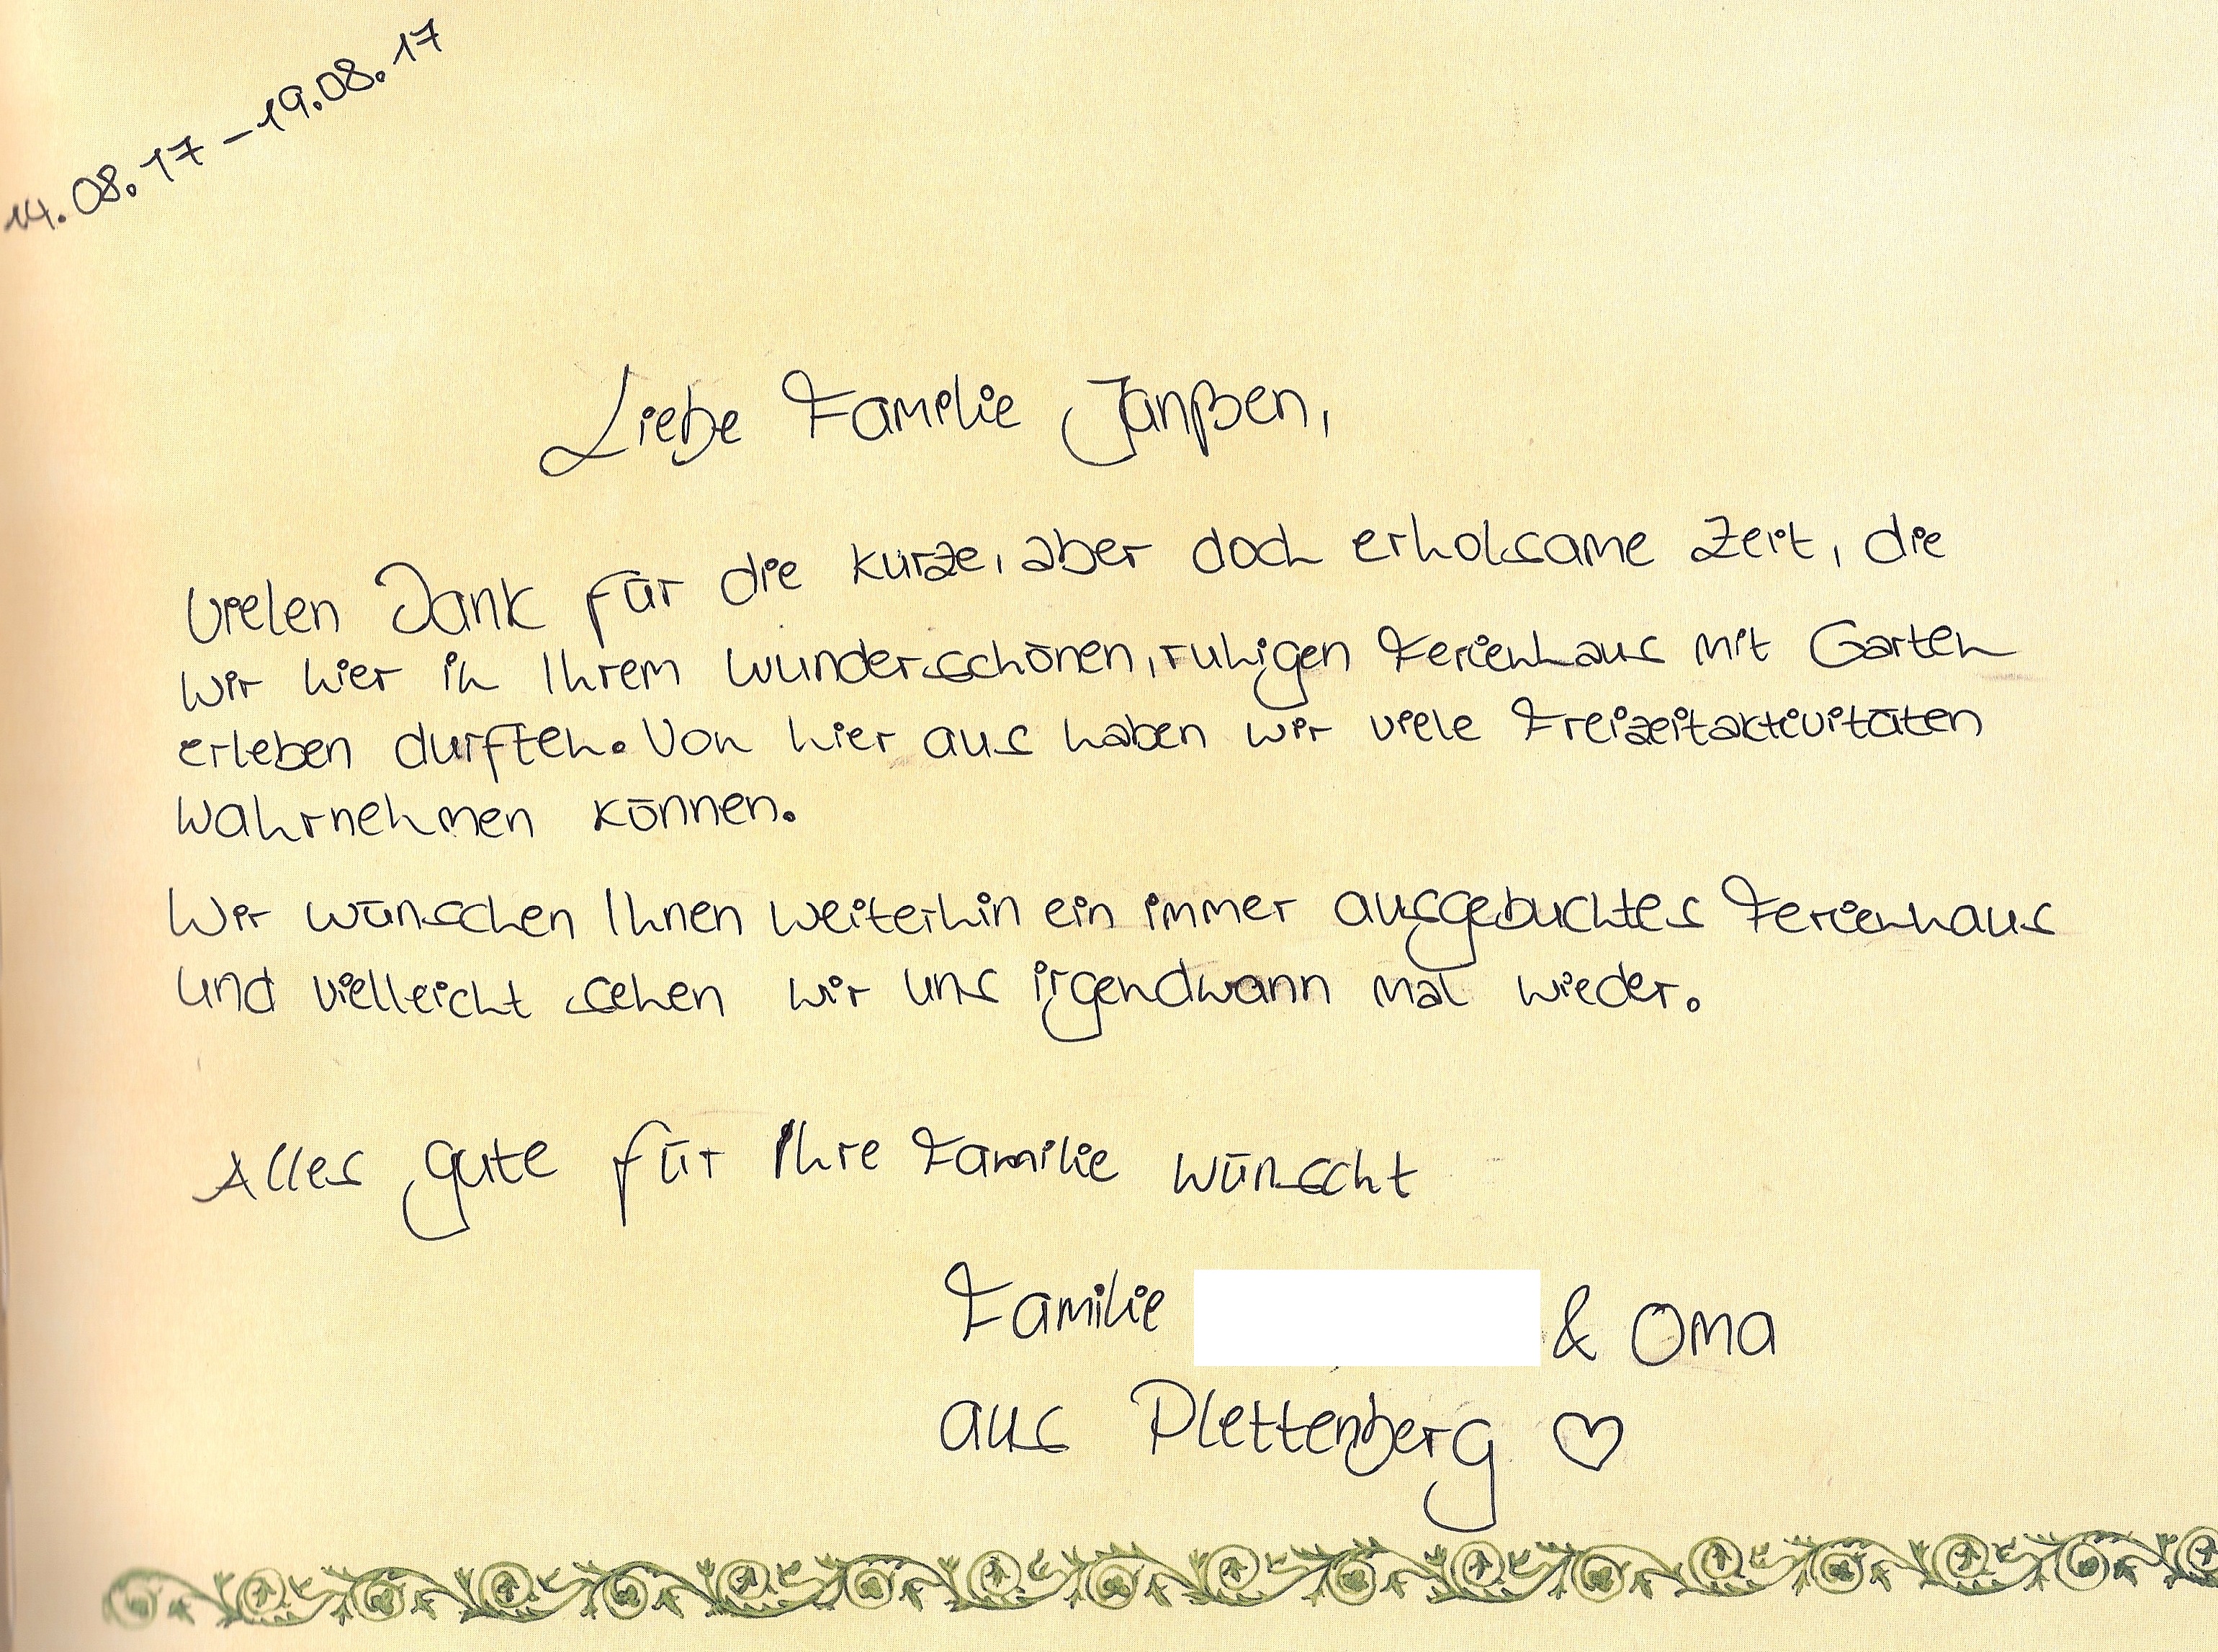 14.08.17 – 19.08.17
Liebe Familie Janßen,
Vielen Dank für die kurze, aber doch erholsame Zeit, die
wir hier in Ihrem wunderschönen, ruhigen Ferienhaus mit Garten
erleben durften. Von hier aus haben wir viele Freizeitaktivitäten
wahrnehmen können.
Wir wünschen Ihnen weiterhin ein immer ausgebuchtes Ferienhaus
und vielleicht sehen wir uns irgendwann mal wieder.
Alles gute für Ihre Familie wünscht
Familie & Oma
aus Plettenberg ♡